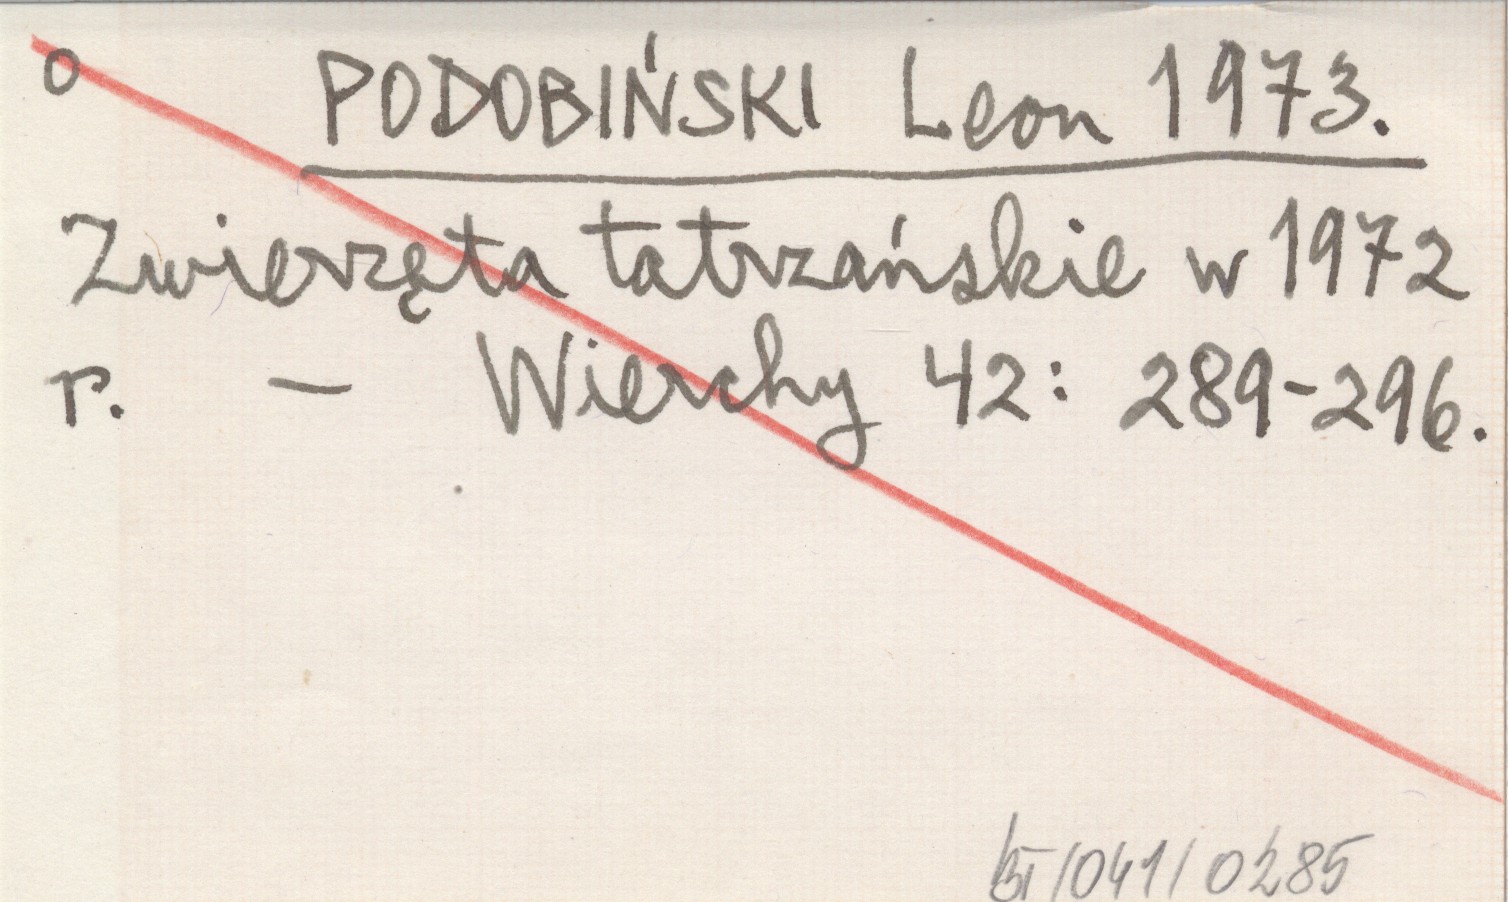 o PODOBIŃSKI Leon 1973.
Zwierzęta tatrzańskie w 1972
r. – Wierchy 42: 289-296.
BT/041/0285